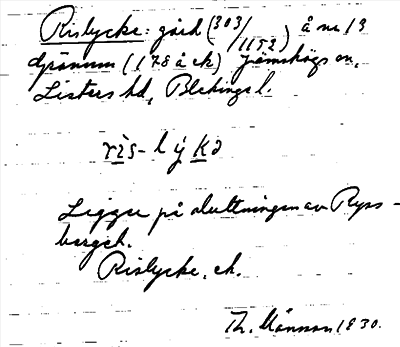 Rislycke: gård (303/1152) å nr 13
Grånum (1178 å ek) Jämshögs sn,
Listers hd, Blekinge l.
rìs-lýkə
Ligger på sluttningen av Ryss-
berget.
Rislycke, ek.
Th. Månsson 1930.